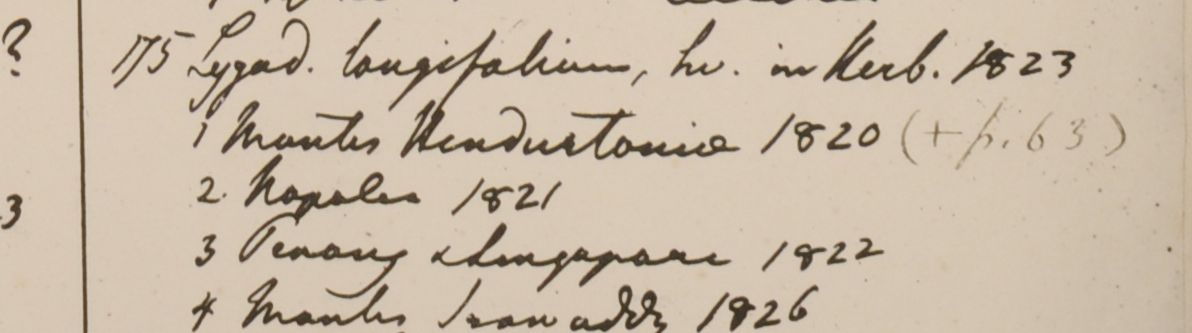 ?
175 Lygod. longifolium, hv. in Herb. 1823
1 Montes Hindustoniae 1820 (+ p. 63)
2. Napalea 1821
3
3 Penang & Singapore 1822
4 Montes Irawaddy 1826